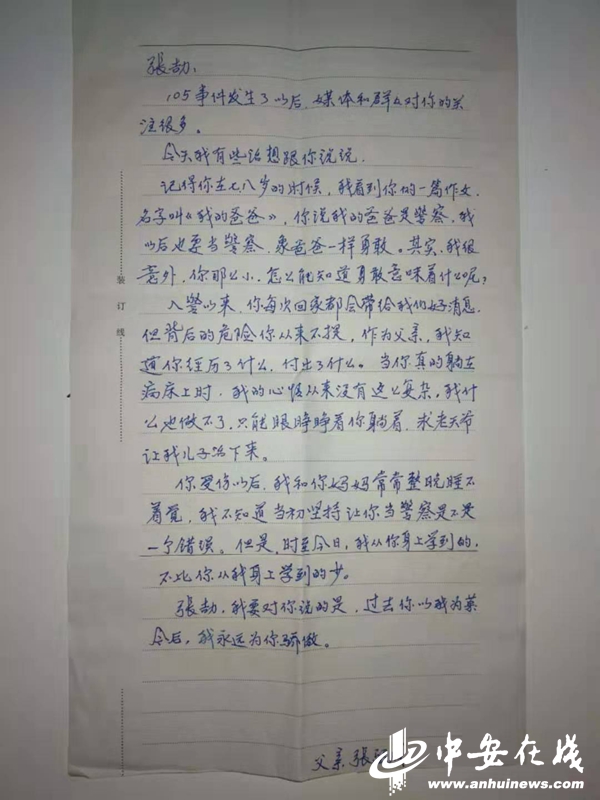 張劼，
105事件发生了以后，媒体和群众对你的关
注很多。
今天我有些话想跟你说说.
记得你在七八岁的时候，我看到你的一篇作文，
名字叫《我的爸爸》，你说我的爸爸是警察，我
以后也要当警察，象爸爸一样勇敢。其实，我很
意外，你那么小，怎么能知道勇敢意味着什么呢？
入警以来，你每次回家都会带给我们好消息，
但背后的危险你从来不提，作为父亲，我知
道你经历了什么，付出了什么。当你真的躺在
病床上时，我的心情从来没有这么复杂，我什
么也做不了，只能眼睁睁看你躺着，求老天爷
让我儿子活下来。
你受伤以后，我和你妈妈常常整晚睡不
着觉，我不知道当初坚持让你当警察是不是
一个错误。但是，时至今日，我从你身上学到的，
不比你从我身上学到的少。
張劼，我要对你说的是，过去你以我为荣
今后，我永远为你骄傲。
父亲 張
装 订 线
中安在线
www.anhuinews.com